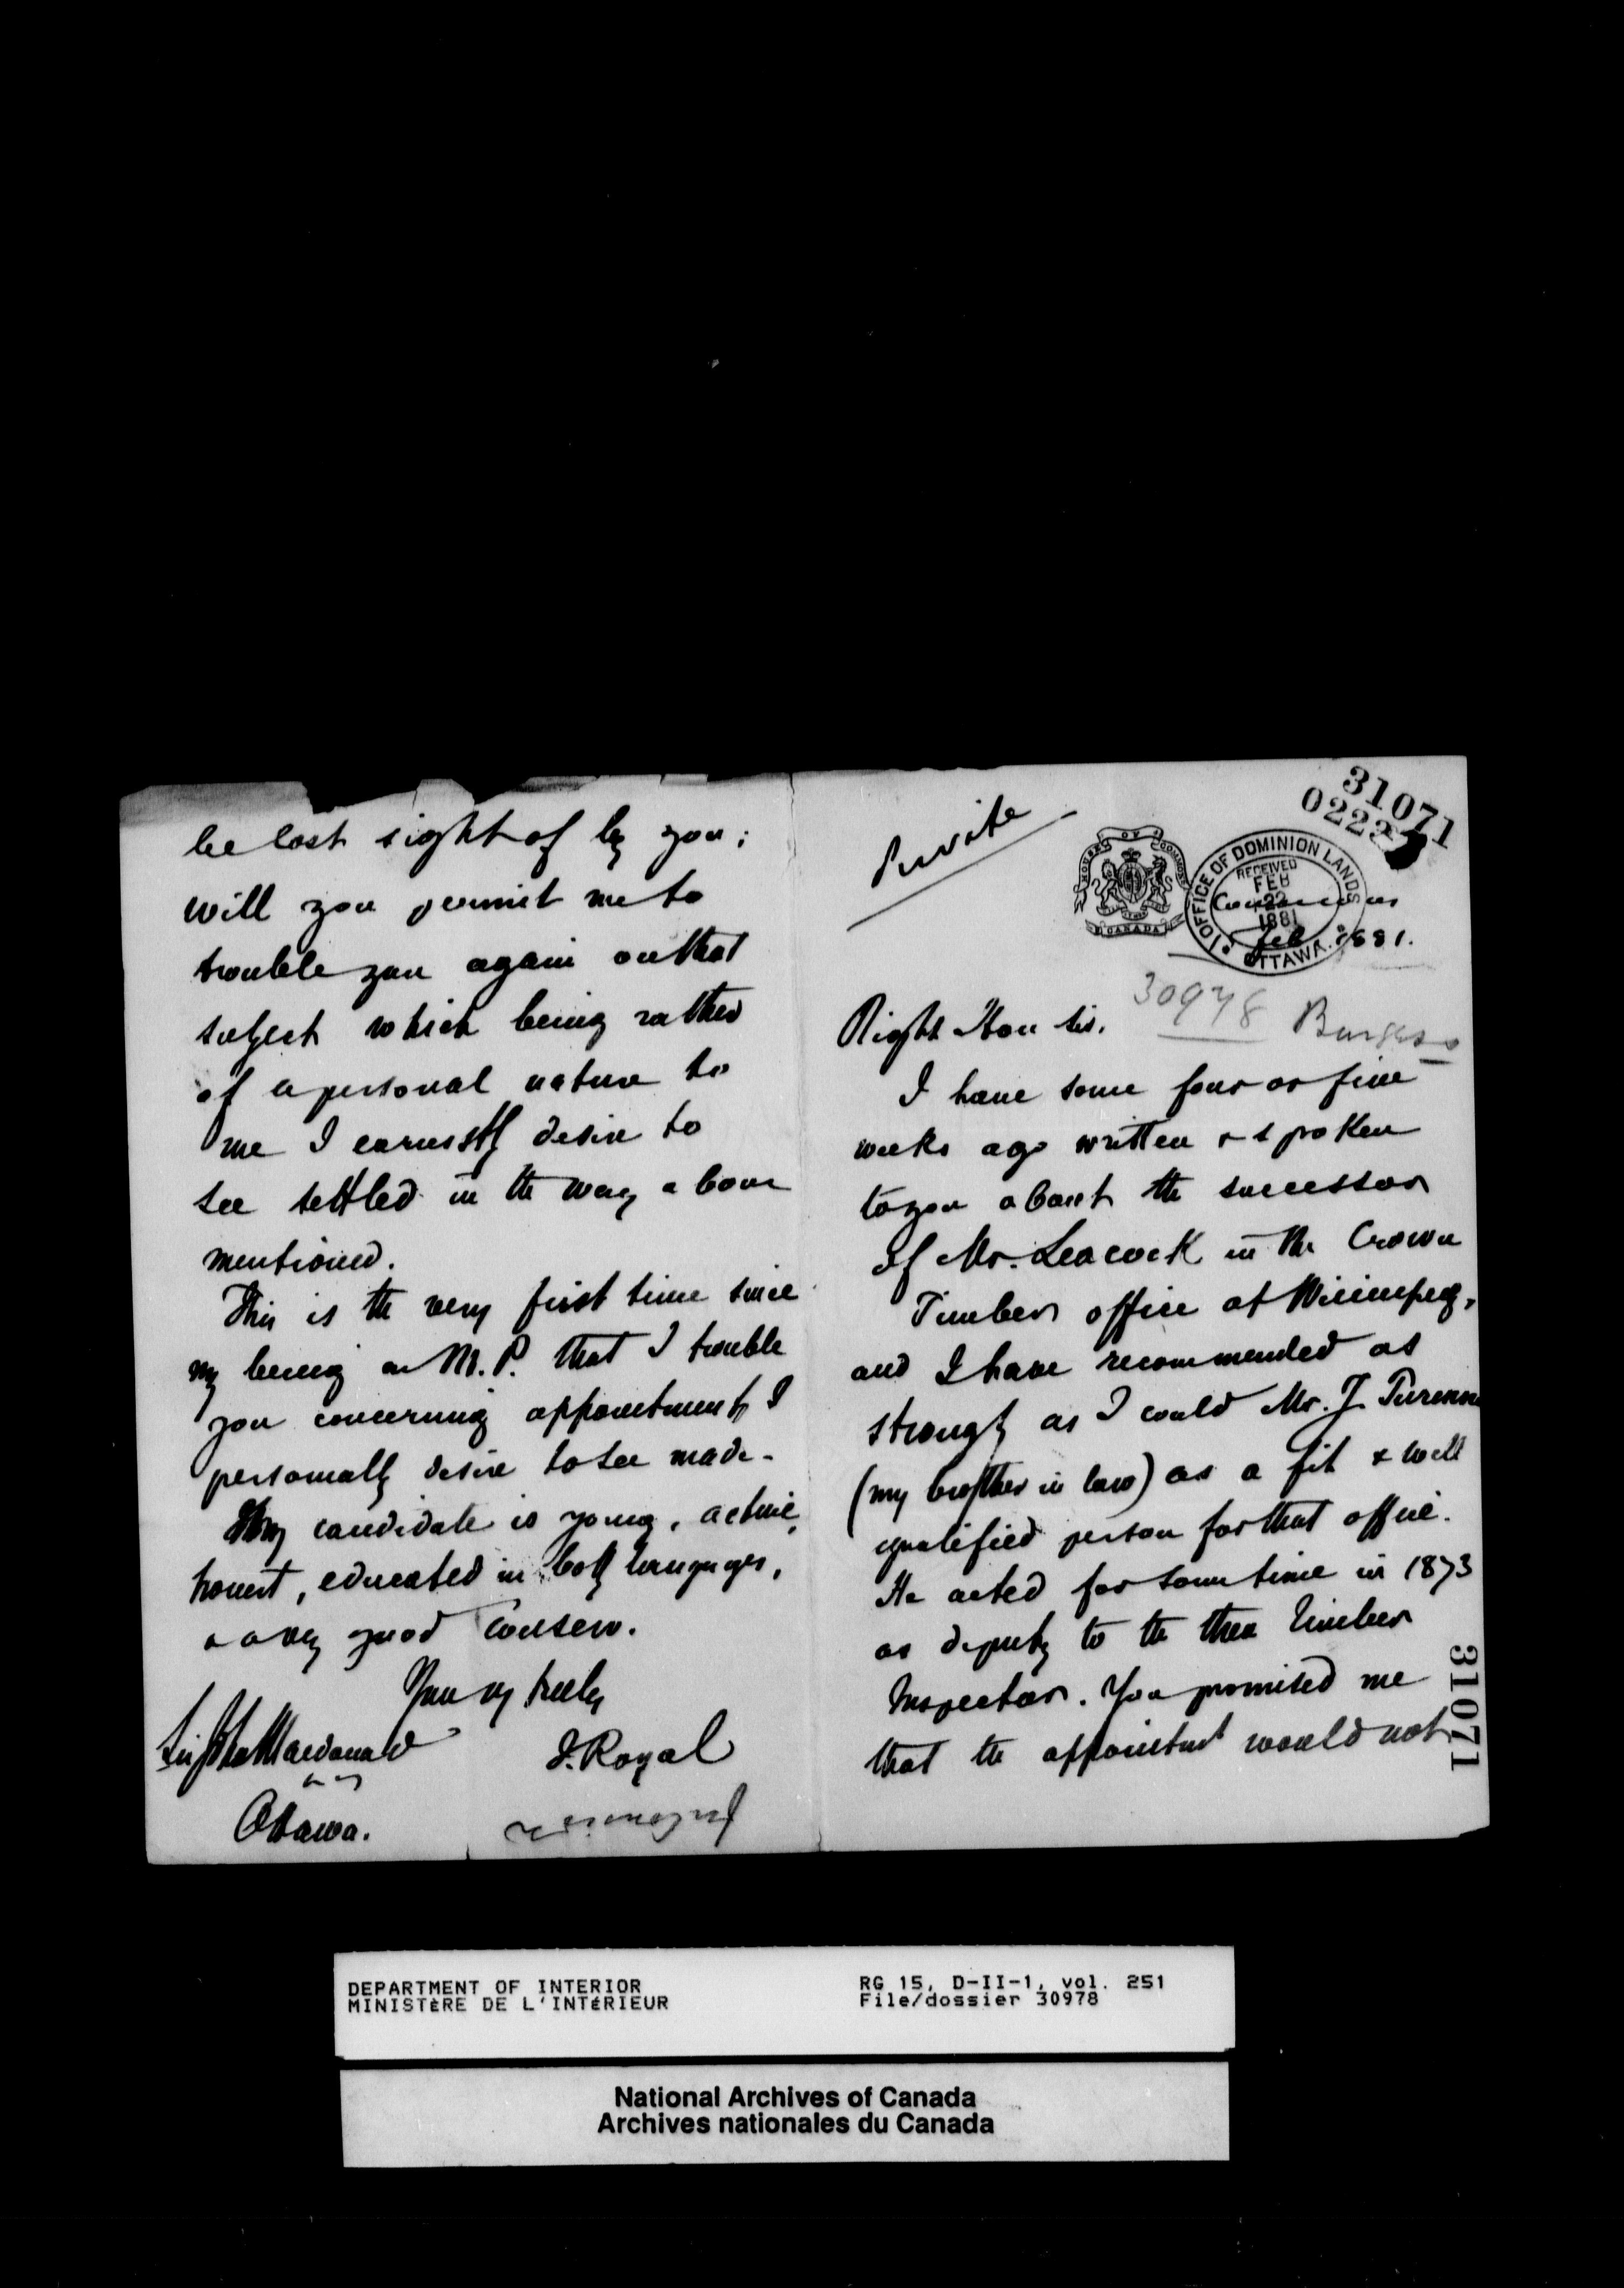 Private
31071
0222
HOUSE OF COMMONS
CANADA
OFFICE OF DOMINION LANDS
RECEIVED
FEB
22
1881
OTTAWA
Commons
feb 1881.
30978 Burgess
Right Hon Sir.
I have some four or five
weeks ago written & spoken
to you about the successor
of Mr. Leacock in the Crown
Timber office at Winnipeg,
and I have recommended as
strongly as I could Mr. J. Turenne
(my brother in law) as a fit & well
qualified person for that office.
He acted for some time in 1873
as deputy to the then Timber
Inspector. You promised me
that the appointment would not
31071
be lost sight of by you;
will you permit me to
trouble you again on that
subject which being rather
of a personal nature to
me I earnestly desire to
see settled in the way above
mentioned.
This is the very first time since
my being an M.P. that I trouble
you concerning appointment I
personally desire to see made.
My candidate is young, active,
honest, educated in both languages,
& a very good Conserv.
Your vy truly
J. Royal
Sir John Macdonald
Ottawa.
DEPARTMENT OF INTERIOR
MINISTÈRE DE L'INTÉRIEUR
RG 15, D-II-1, vol. 251
File/dossier 30978
National Archives of Canada
Archives nationales du Canada